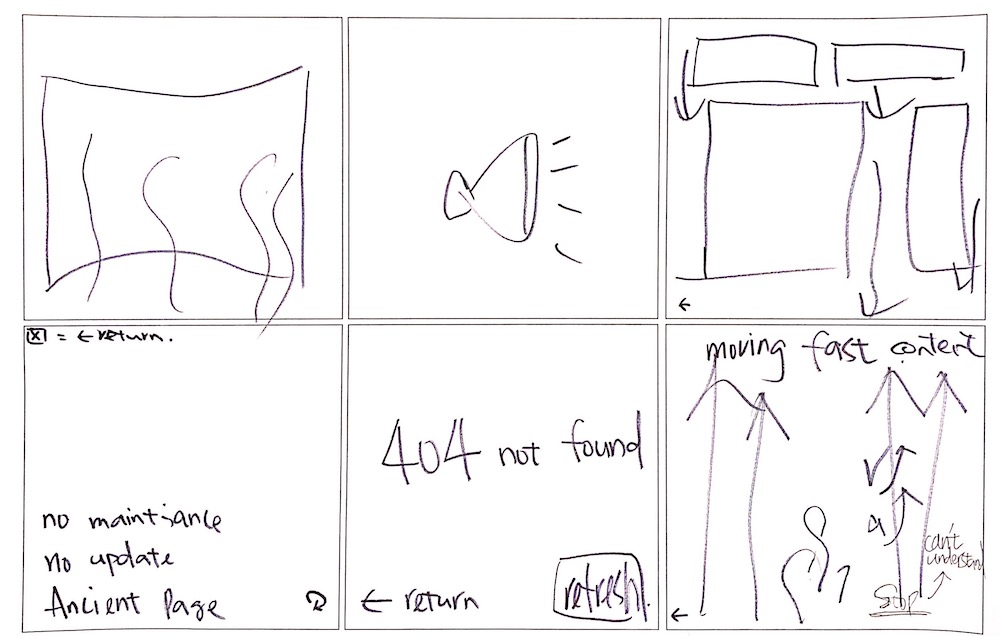 ☒ = ← return.
no maintiance
no update
Ancient Page
404 not found
← return
refresh.
moving fast content
can't
understand
Stop